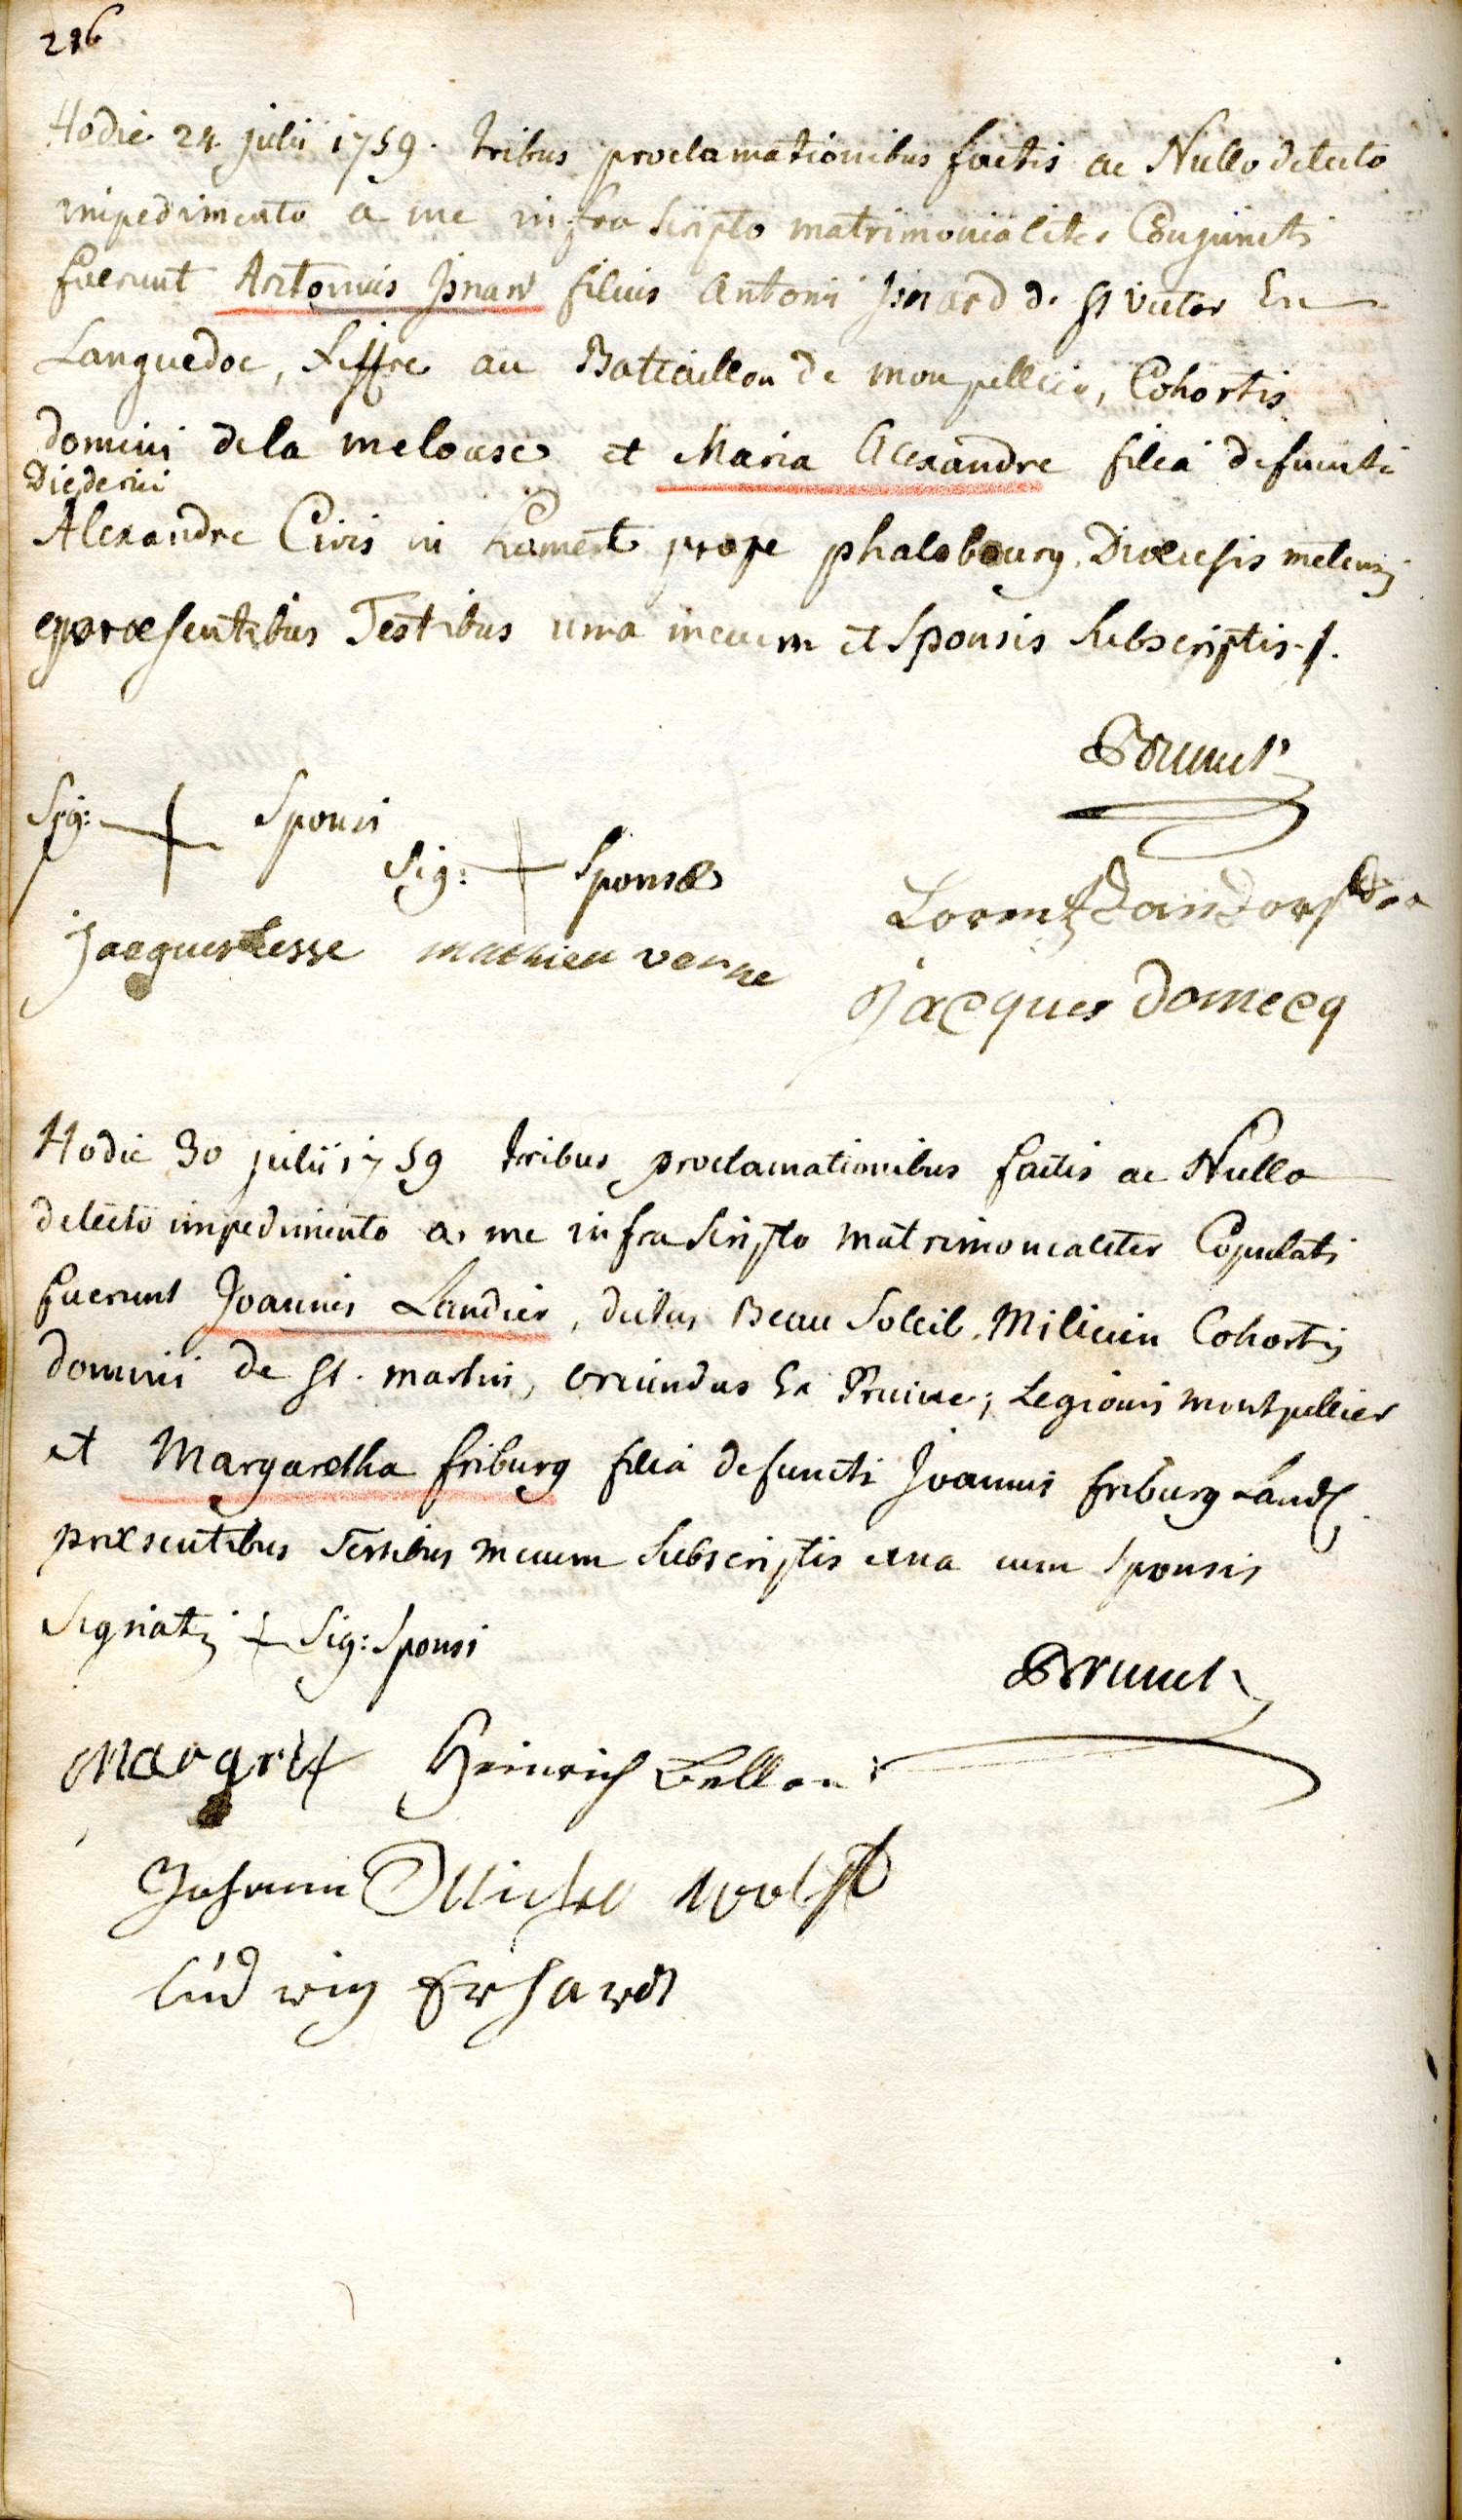 216
Hodie 24 julii 1759. tribus proclamationibus factis ac Nullo detecto
impedimento a me infra scripto matrimonialiter Conjuncti
fuerunt Antonius Isnard filius Antonii Isnard de St victor En
Languedoc, fiffre au Bataillon de monpellier, Cohortis
domini dela melouse et Maria Alexandre filia defuncti
Diederici
Alexandre Civis in prope phalsbourg, Dioecesis metensis
praesentibus Testibus una mecum et Sponsis Subscriptis./.
Brunet
Sig: + Sponsi
Sig: + Sponsae
Lorentz
jacques Lesse mathieu verne
jacques domecq
Hodie 30 julii 1759 tribus proclamationibus factis ac Nullo
detecto impedimento a me infra scripto matrimonialiter Copulati
fuerunt Joannes Landier, dictus Beau Soleil. Cohortis
domini de St. martin, oriundus Ex Legionis montpellier
et Margaretha friburg filia defuncti Joannis friburg
praesentibus Testibus mecum Subscriptis una cum Sponsis
+ Sig: Sponsi
Brunet
Margrit Heinrich
Johann Michel wolff
Ludwig Erhardt